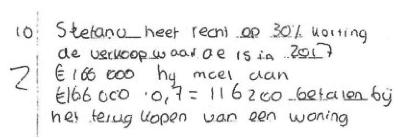 10 Stefano heet recht op 30% korting
de verkoopwaarde is in 2017
2 € 166 000 hij moet dan
€166 000 · 0,7 = 116 200 betalen bij
het terug kopen van een woning